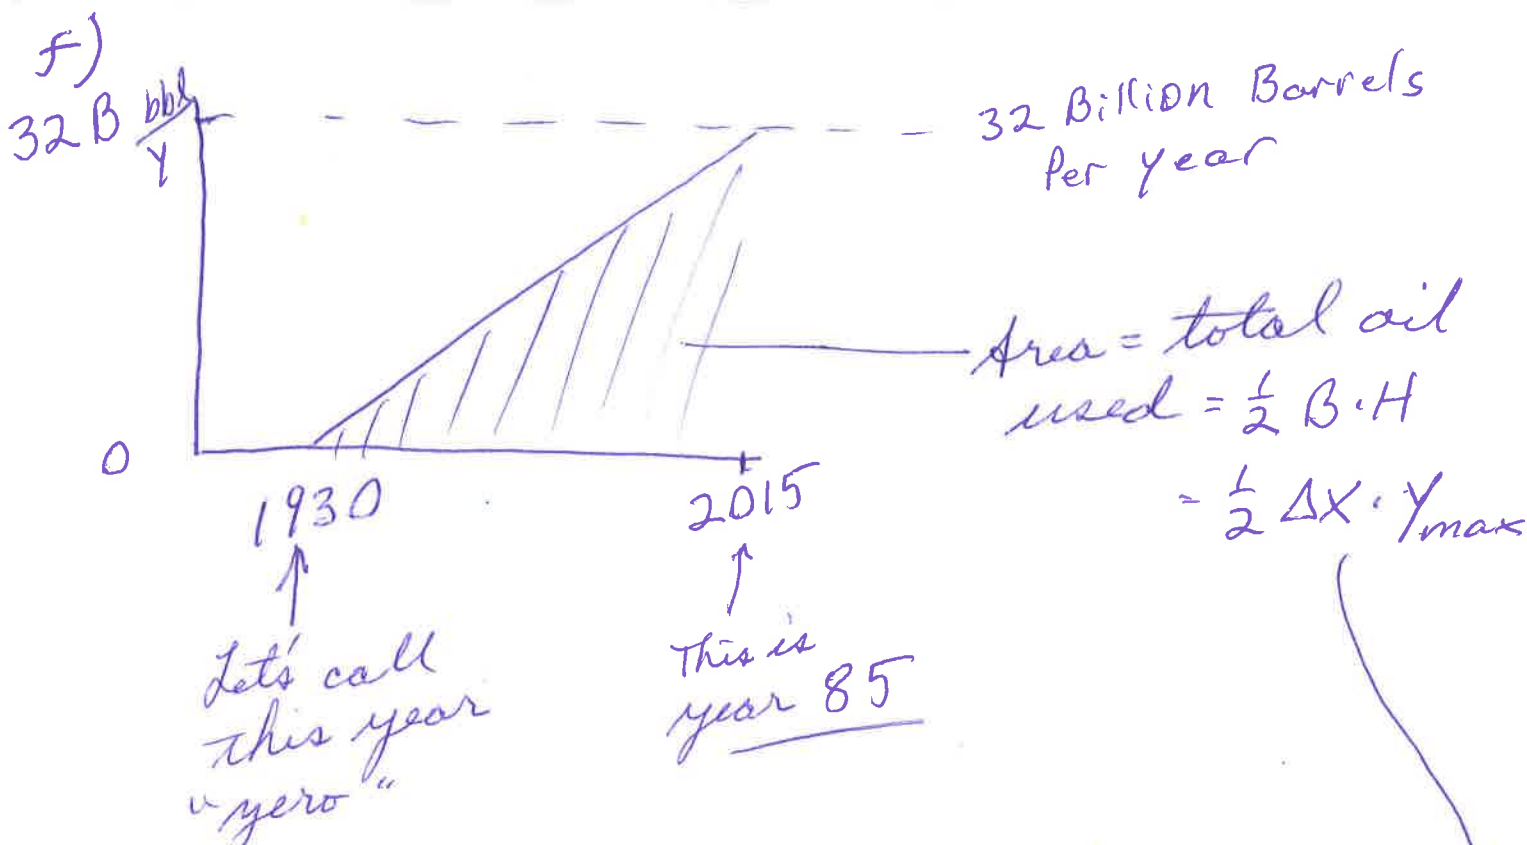 f)
32 B bbl/y
32 Billion Barrels
Per year
Area = total oil
used = 1/2 B·H
= 1/2 ΔX · Ymax
0
1930
2015
Let's call
this year
"zero"
This is
year 85